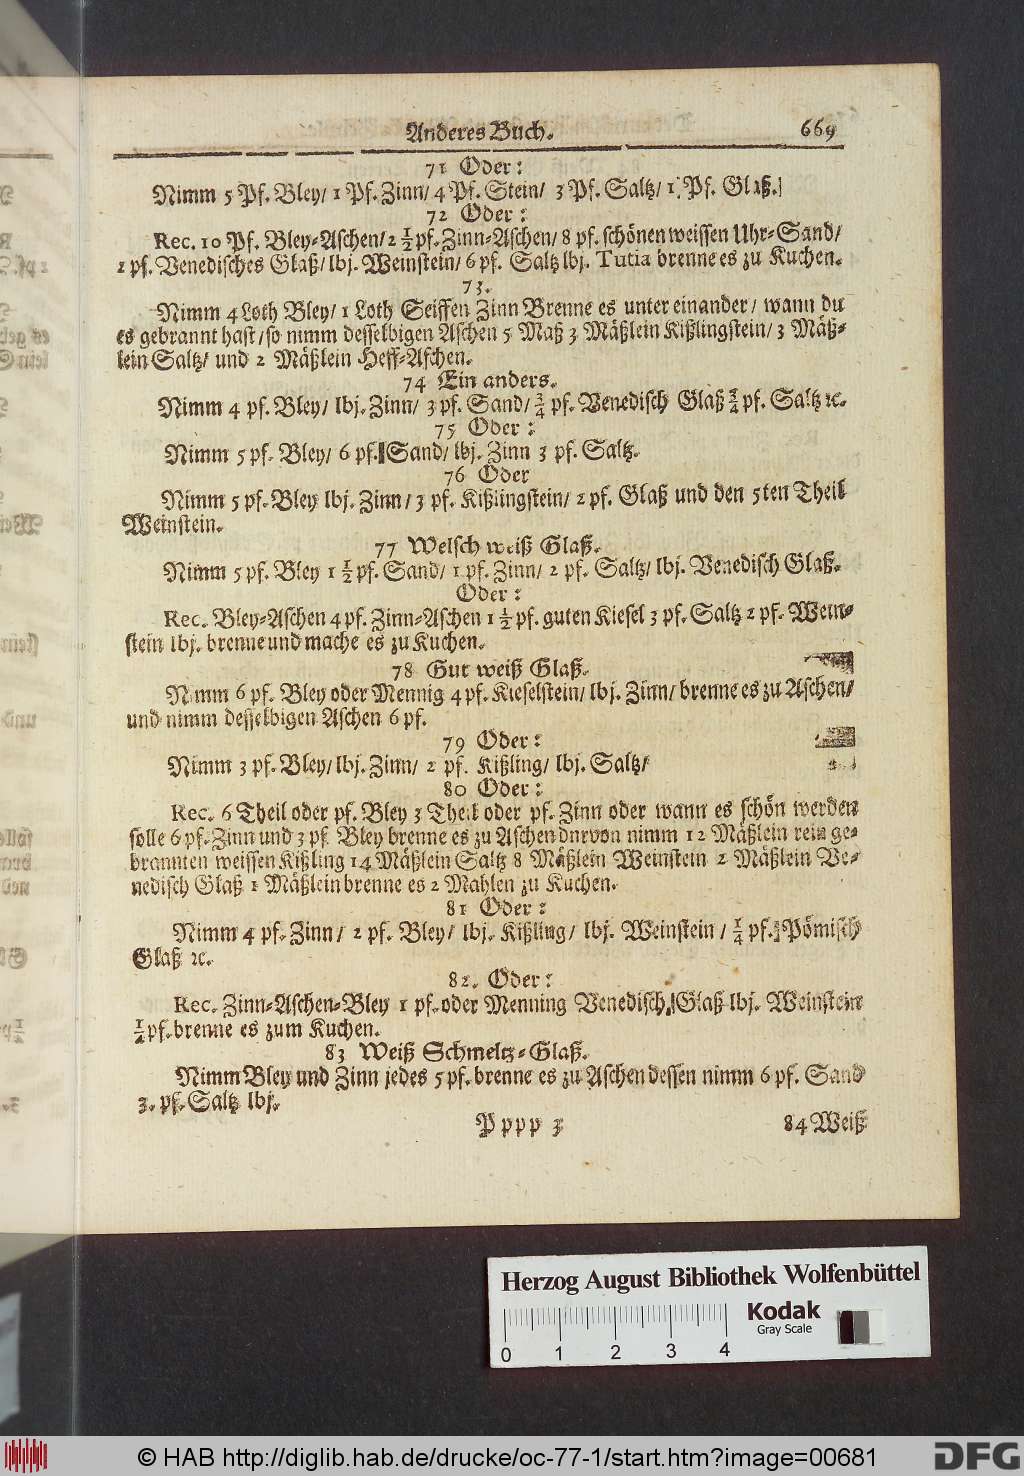 Anderes Buch. 669
71 Oder:
Nimm 5 Pf. Bley/ 1 Pf. Zinn/ 4 Pf. Stein/ 3 Pf. Saltz/ 1. Pf. Glaß.
72 Oder:
Rec. 10 Pf. Bley-Aschen/ 2 1/2 pf. Zinn-Aschen/ 8 pf. schönen weissen Uhr-Sand/
1 pf. Venedisches Glaß/ lbj. Weinstein/ 6 pf. Saltz lbj. Tutia brenne es zu Kuchen.
73.
Nimm 4 Loth Bley/ 1 Loth Seiffen Zinn Brenne es unter einander/ wann du
es gebrannt hast/ so nimm desselbigen Aschen 5 Maß 3 Mäßlein Kißlingstein/ 3 Mäß-
lein Saltz/ und 2 Mäßlein Heff-Aschen.
74 Ein anders.
Nimm 4 pf. Bley/ lbj. Zinn/ 3 pf. Sand/ 3/4 pf. Venedisch Glaß 3/4 pf. Saltz ꝛc.
75 Oder:
Nimm 5 pf. Bley/ 6 pf. Sand/ lbj. Zinn 3 pf. Saltz.
76 Oder
Nimm 5 pf. Bley lbj. Zinn/ 3 pf. Kißlingstein/ 2 pf. Glaß und den 5ten Theil
Weinstein.
77 Welsch weiß Glaß.
Nimm 5 pf. Bley 1 1/2 pf. Sand/ 1 pf. Zinn/ 2 pf. Saltz/ lbj. Venedisch Glaß.
Oder:
Rec. Bley-Aschen 4 pf. Zinn-Aschen 1 1/2 pf. guten Kiesel 3 pf. Saltz 2 pf. Wein-
stein lbj. brenne und mache es zu Kuchen.
78 Gut weiß Glaß.
Nimm 6 pf. Bley oder Mennig 4 pf. Kieselstein/ lbj. Zinn/ brenne es zu Aschen/
und nimm desselbigen Aschen 6 pf.
79 Oder:
Nimm 3 pf. Bley/ lbj. Zinn/ 2 pf. Kißling/ lbj. Saltz/
80 Oder:
Rec. 6 Theil oder pf. Bley 3 Theil oder pf. Zinn oder wann es schön werden
solle 6 pf. Zinn und 3 pf. Bley brenne es zu Aschen durvon nimm 12 Mäßlein rein ge-
brannten weissen Kißling 14 Mäßlein Saltz 8 Mäßlein Weinstein 2 Mäßlein Ve-
nedisch Glaß 1 Mäßlein brenne es 2 Mahlen zu Kuchen.
81 Oder:
Nimm 4 pf. Zinn/ 2 pf. Bley/ lbj. Kißling/ lbj. Weinstein/ 1/4 pf. Pömisch
Glaß ꝛc.
82. Oder:
Rec. Zinn-Aschen-Bley 1 pf. oder Menning Venedisch Glaß lbj. Weinstein
1/2 pf. brenne es zum Kuchen.
83 Weiß Schmeltz-Glaß.
Nimm Bley und Zinn jedes 5 pf. brenne es zu Aschen dessen nimm 6 pf. Sand
3. pf. Saltz lbj.
P ppp 3 84 Weiß
Herzog August Bibliothek Wolfenbüttel
0 1 2 3 4
Kodak
Gray Scale
© HAB http://diglib.hab.de/drucke/oc-77-1/start.htm?image=00681
DFG